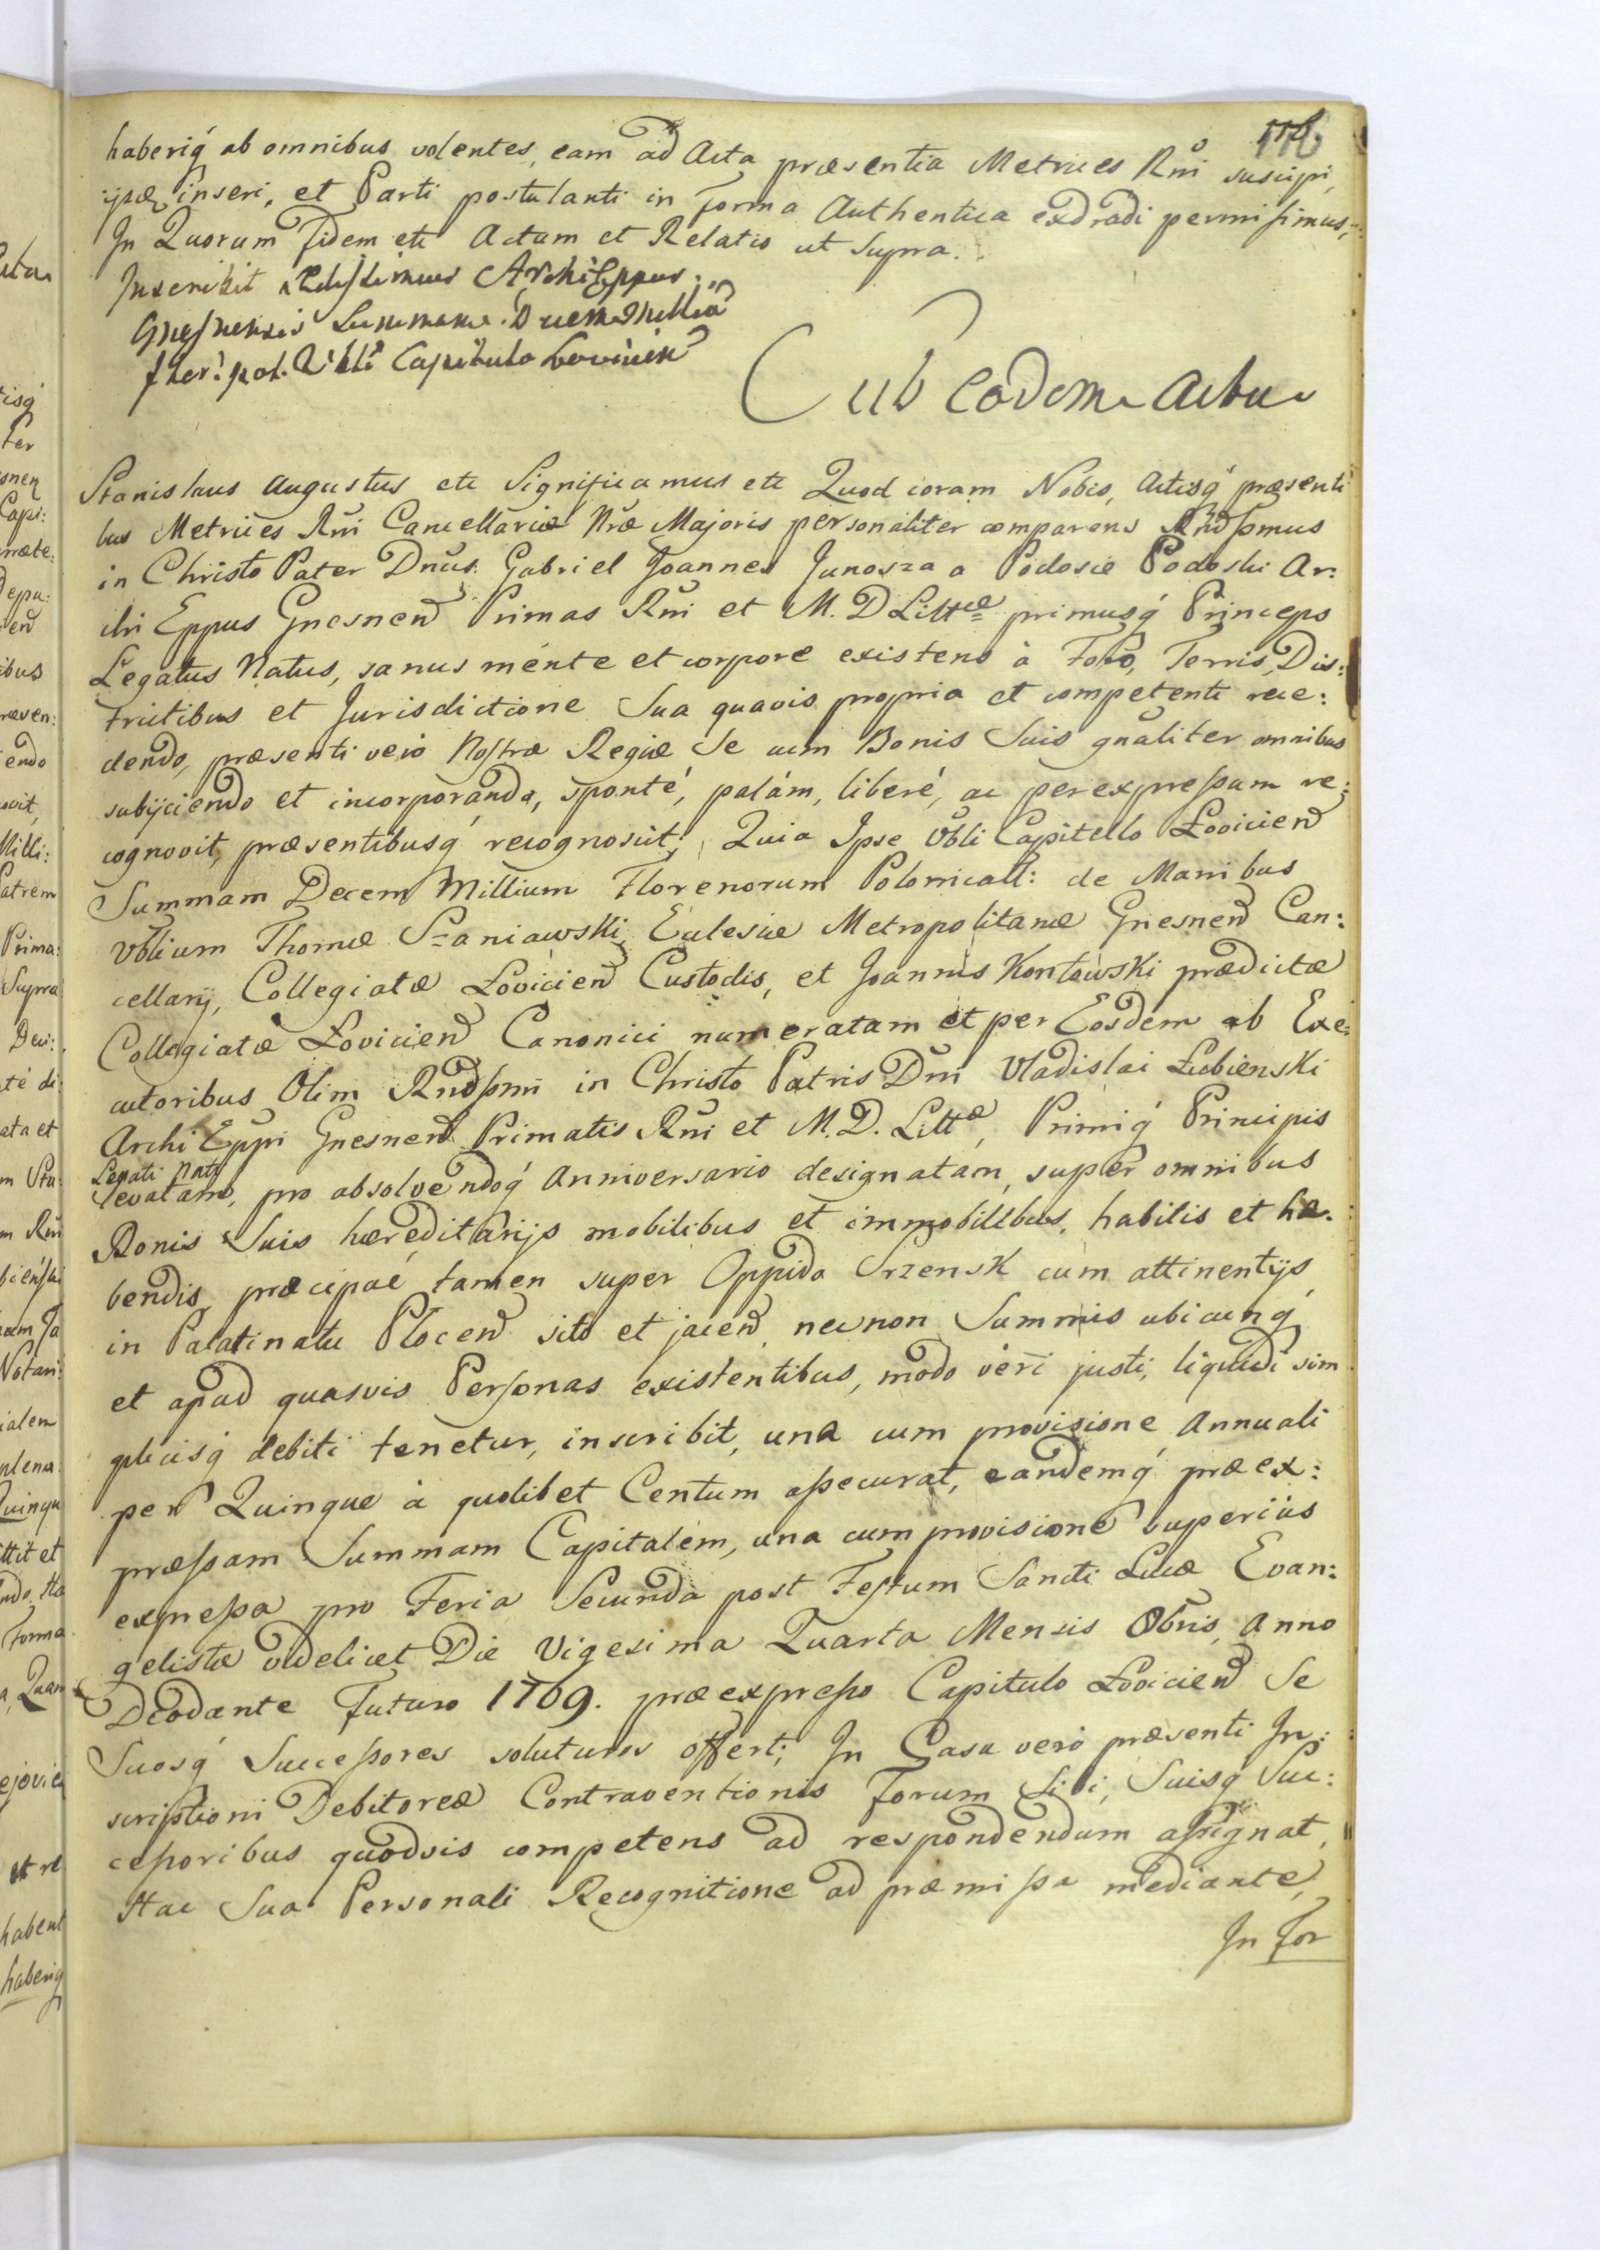 116
haberiq́ ab omnibus volentes, eam ad Acta præsentia Metrices Rñi suscipi,
ijsq̃ inseri, et Parti postulanti in forma Authentica extradi permisimus,
In Quorum fidem etc Actum et Relatio ut supra.
Inscribit Archi Eppus
Gnesnensis Summam Decem Millia
flor: pol. Capitulo Lovicien
Sub eodem Actu
Stanislaus Augustus etc Significamus etc Quod coram Nobis, Actisq́ præsenti
bus Metrices Rñi Cancellariæ Nræ Majoris personaliter comparens Rñdssmus
in Christo Pater Dnũs Gabriel Joannes Junosza a Podosie Podoski Ar:
chi Eppus Gnesnen Primas Rñi et M. D Littæ primusq́ Princeps
Legatus Natus, sanus ménte et corpore existens à Foro, Terris, Dis:
trictibus et Jurisdictione Sua quavis propria et competenti rece:
dendo, præsenti verò Nostræ Regiæ Se cum Bonis Suis gnãliter omnibus
subijciendo et incorporando, sponté, palám, liberé, ac per expressum re:
cognovit, præsentibusq́ recognoscit; Quia Ipse Vbli Capitello Lovicien
Summam Decem Millium Florenorum Polonicall: de Manibus
Vblium Thomæ Szaniawski Ecclesiæ Metropolitanæ Gnesnen Can:
cellarij, Collegiatæ Lovicien Custodis, et Joannis Kontowski prædictæ
Collegiatæ Lovicien Canonici numeratam et per Eosdem ab Exe:
cutoribus Olim Rndssmi in Christo Patris Dñi Vladislai Łubienski
Archi Eppi Gnesnen Primatis Rñi et M. D. Littæ, Primiq́ Principis
Legati Nati
levatam, pro absolvendoq́ Anniversario designatam, super omnibus
Bonis Suis hæreditarijs mobilibus et immobilibus, habitis et ha:
bendis, præcipué tamen super Oppido Srzensk cum attinentijs,
in Palatinatu Plocen sito et jacen, necnon Summis ubicunq́
et apud quasvis Personas existentibus, modo veri justi, liquidi sim
plicisq́ debiti tenetur, inscribit, una cum provisione Annuali
per Quinque à quolibet Centum assecurat, eandemq́ præex:
præssam Summam Capitalem, una cum provisione superiùs
expressa pro Feria Secunda post Festum Sancti Lucæ Evan:
gelistæ videlicet Die Vigesima Quarta Mensis Obris, Anno
Deodante Futuro 1769. præexpresso Capitulo Lovicien Se
Suosq́ Successores soluturos offert; In Casu verò præsenti In:
scriptioni Debitoreæ Contraventionis Forum Sibi, Suisq́ Suc:
cessoribus quodvis competens ad respondendum assignat,
Hac Sua Personali Recognitione ad præmissa mediante,
In For